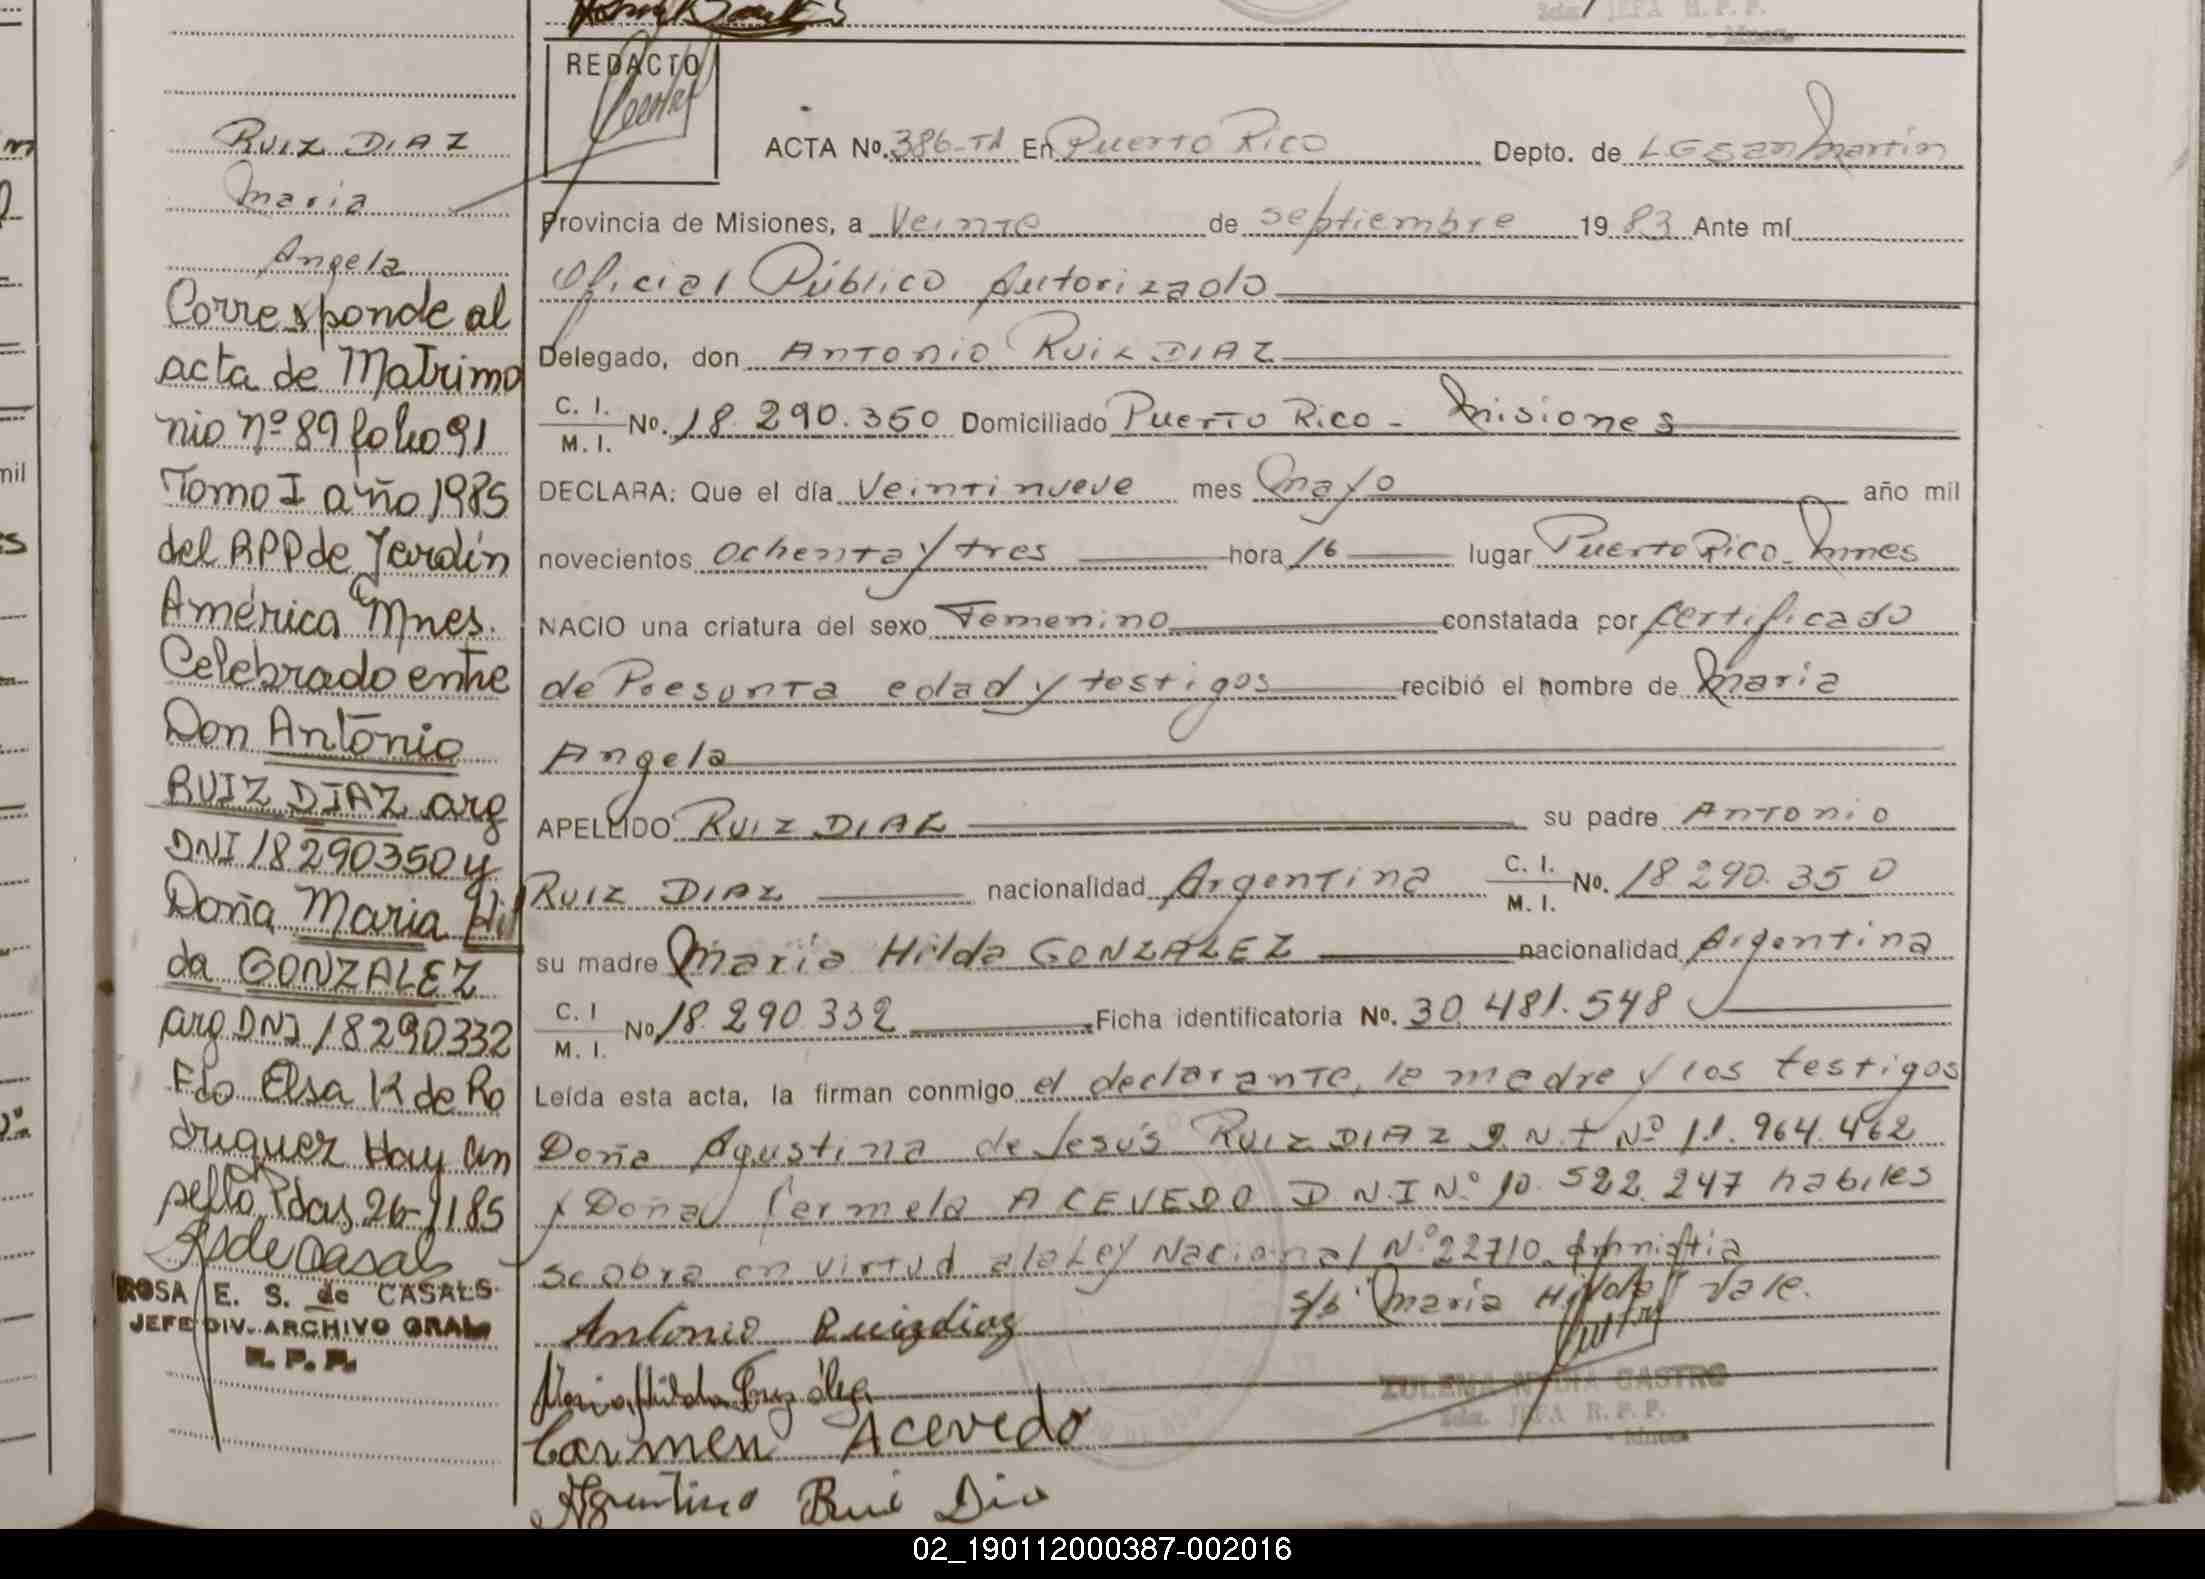 REDACTO
ACTA No. 386-TI En Puerto Rico Depto. de L G San Martin
Provincia de Misiones, a Veinte de septiembre 1983 Ante mí
Oficial Público Autorizado
Delegado, don ANTONIO RUIZ DIAZ
C. I. / M. I. No. 18.290.350 Domiciliado Puerto Rico - Misiones
DECLARA: Que el día Veintinueve mes Mayo año mil
novecientos ochenta y tres hora 16 lugar Puerto Rico - Mnes
NACIO una criatura del sexo Femenino constatada por certificado
de Presunta edad y testigos recibió el nombre de Maria
Angela
APELLIDO RUIZ DIAZ su padre ANTONIO
RUIZ DIAZ nacionalidad Argentina C. I. / M. I. No. 18 290.350
su madre Maria Hilda GONZALEZ nacionalidad Argentina
C. I / M. I. No 18.290.332 Ficha identificatoria No. 30.481.548
Leída esta acta, la firman conmigo el declarante, la madre y los testigos
Doña Agustina de Jesús RUIZ DIAZ D.N.I Nº 11.964.462
y Doña Carmela ACEVEDO D.N.I Nº 10.522.247 habiles
se obra en virtud a la Ley Nacional Nº 22710 Amnistia
s/b Maria Hilda Vale.
Antonio Ruizdiaz
Maria Hilda
Carmen Acevedo
ZULEMA NOLIA CASTRO
2da. JEFA R. P. P.
Mnes.
RUIZ DIAZ
Maria
Angela
Corresponde al
acta de Matrimo
nio nº 89 folio 91
Tomo I año 1985
del RPP de Jardín
América Mnes.
Celebrado entre
Don Antonio
RUIZ DIAZ arg
DNI 18290350 y
Doña Maria Hil
da GONZALEZ
arg DNI 18290332
Fdo Elsa K de Ro
driguez Hay un
sello Pdas 26-1185
ROSA E. S. de CASALS
JEFE DIV. ARCHIVO GRAL
R. P. P.
mil
02_190112000387-002016